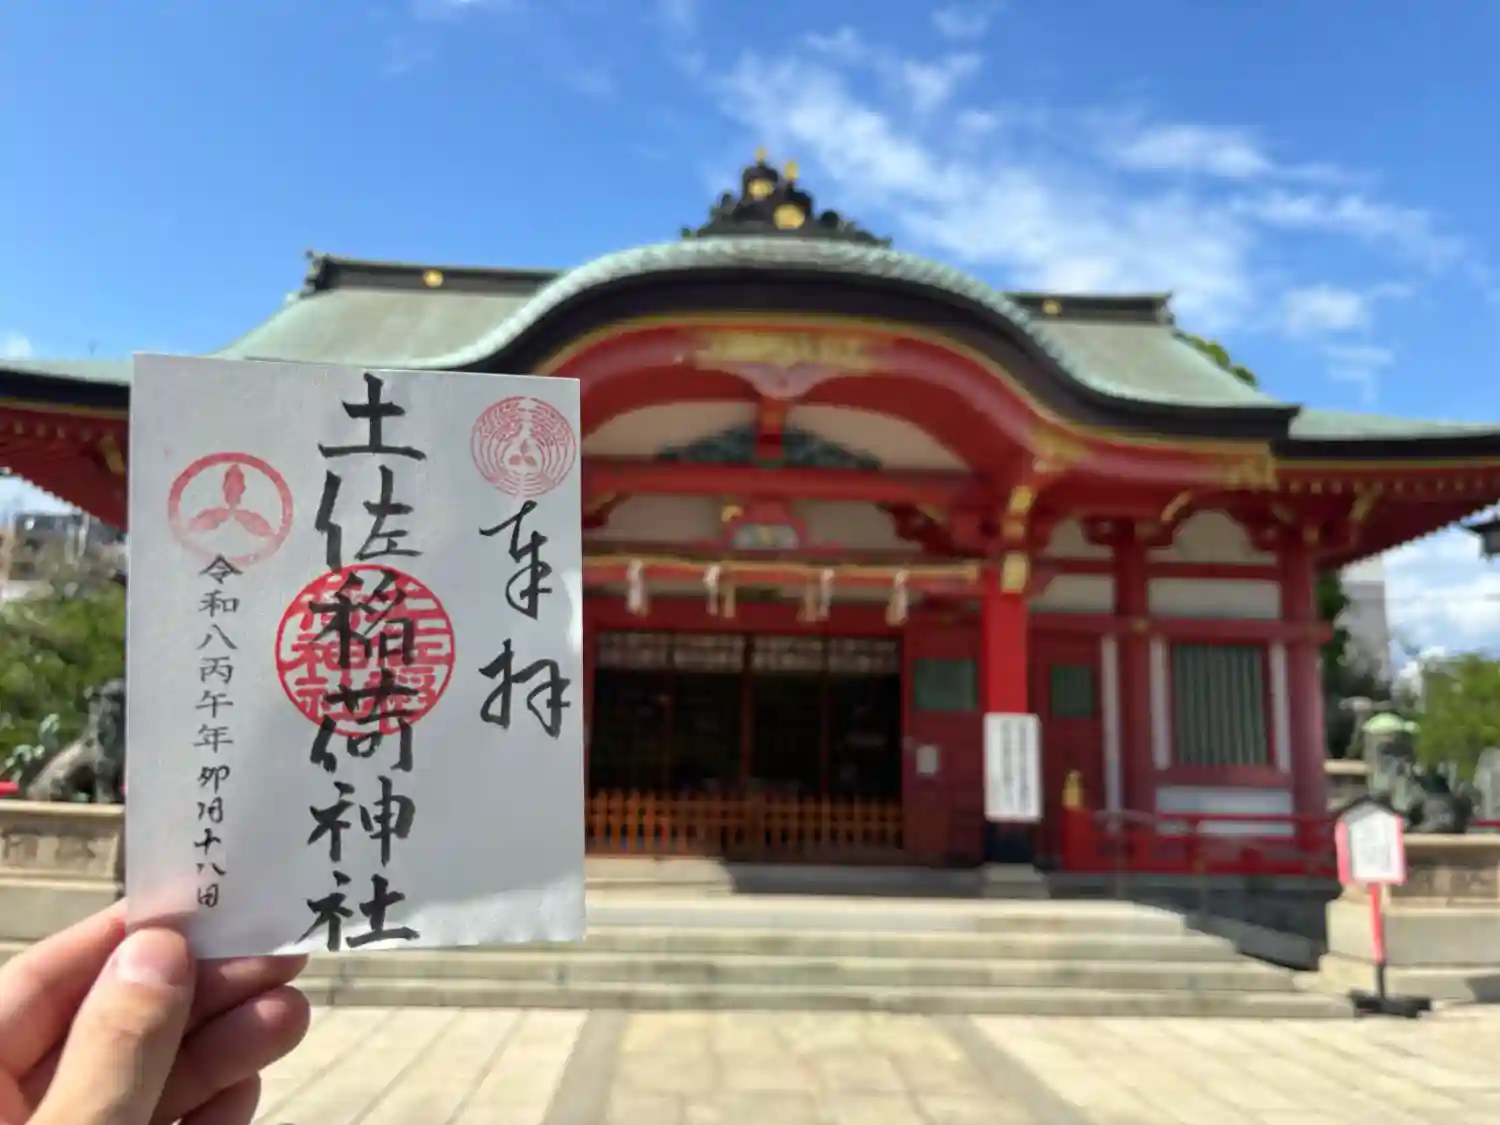 奉拝
土佐稲荷神社
令和八丙午年卯月十八日